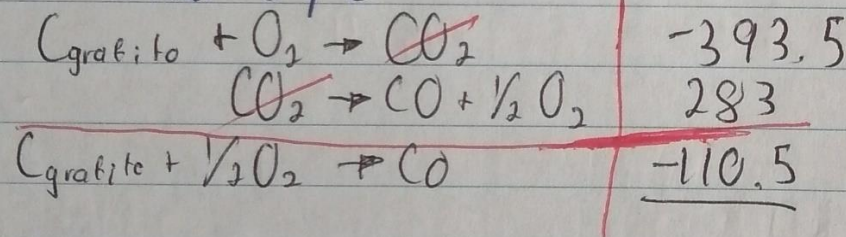 Cgrafito + O2 → CO2 -393.5
CO2 → CO + 1/2 O2 283
Cgrafito + 1/2 O2 → CO -110.5